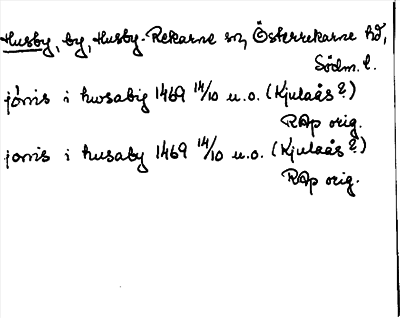 Husby, by, Husby-Rekarne sn, Österrekarne hd,
Södm. l.
jønis i hwsabig 1469 14/10 u.o. (Kjulaås?)
RAp orig.
jonis i husaby 1469 14/10 u.o. (Kjulaås?)
RAp orig.